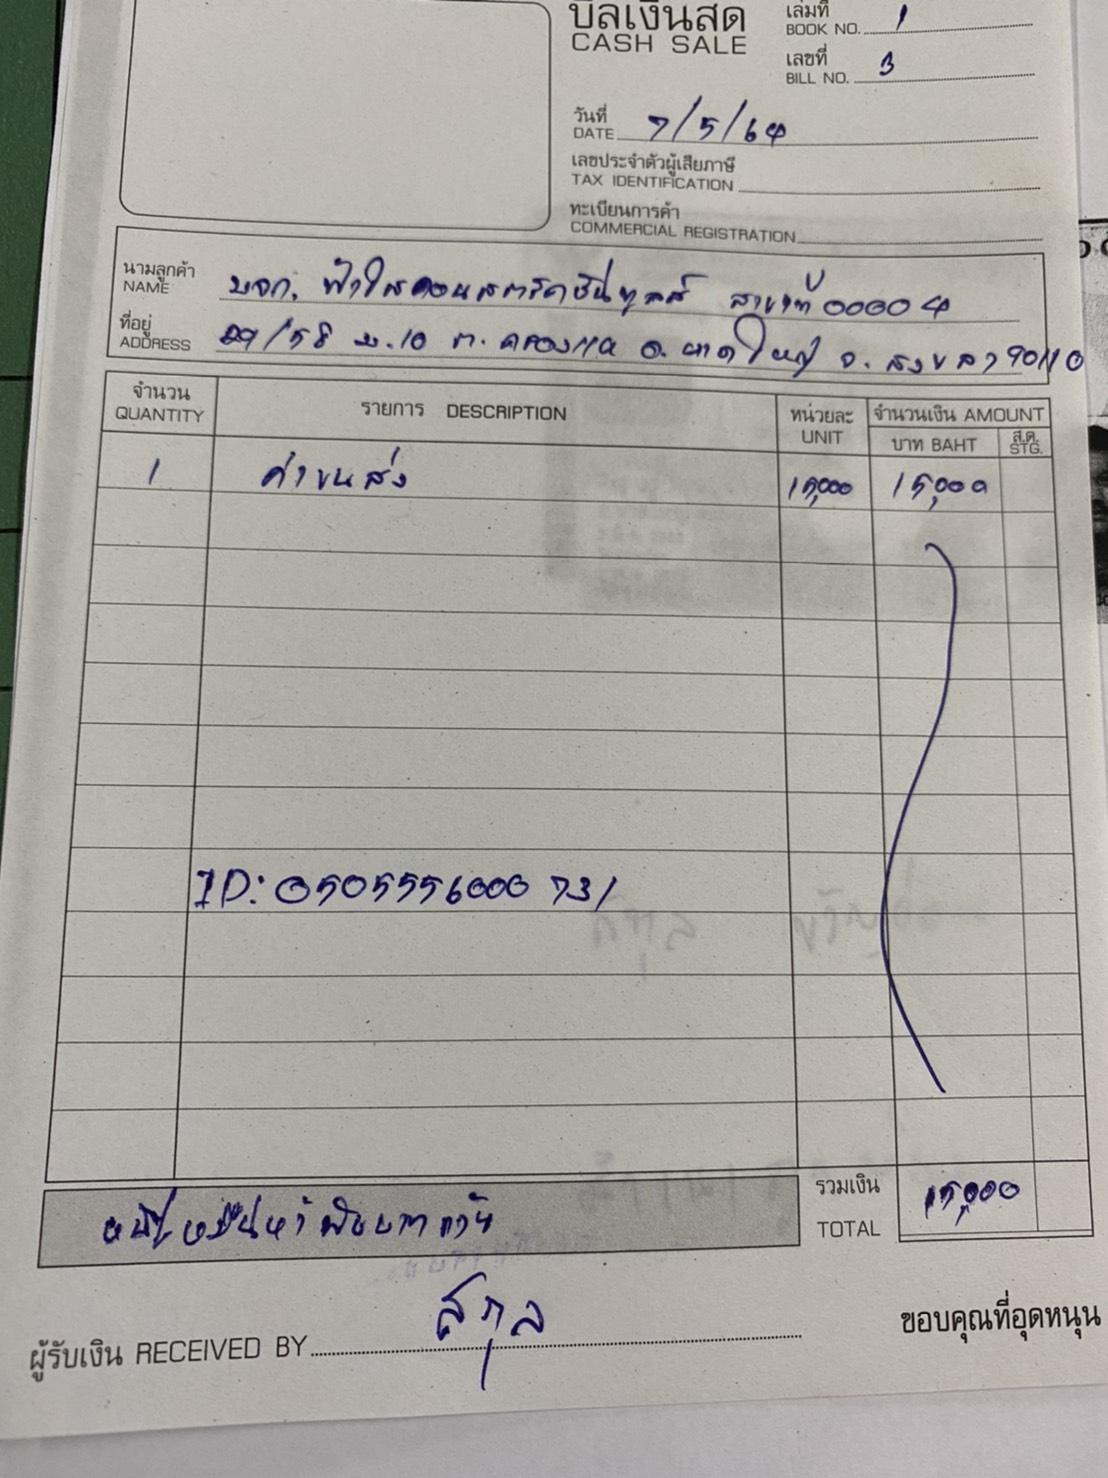 บิลเงินสด
CASH SALE
เล่มที่
BOOK NO. 1
เลขที่
BILL NO. 3
วันที่
DATE 7/5/64
เลขประจำตัวผู้เสียภาษี
TAX IDENTIFICATION
ทะเบียนการค้า
COMMERCIAL REGISTRATION
นามลูกค้า
NAME บจก. ฟ้าใสคอนสตรัคชั่นทูลส์ สาขาที่ 00004
ที่อยู่
ADDRESS /58 ม.10 ต. คลองแห อ. หาดใหญ่ จ. สงขลา 90110
จำนวน
QUANTITY
รายการ DESCRIPTION
หน่วยละ
UNIT
จำนวนเงิน AMOUNT
บาท BAHT
ส.ต.
STG.
1 ค่าขนส่ง 15,000 15,000
ID: 0505556000731
หนึ่งหมื่นห้าพันบาทถ้วน
รวมเงิน
TOTAL 15,000
ผู้รับเงิน RECEIVED BY
ขอบคุณที่อุดหนุน